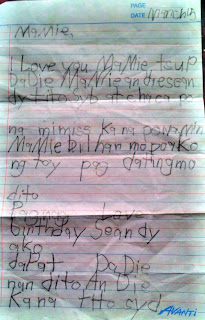 PAGE
DATE March 5
MaMie,
I Love you MaMie tsup
DaDie MaMie andiesean
dy tito syd atchaca
na mimiss ka na po NaMin
MaMie bilhan mo po ako
ng toy pag dating mo
dito
Lav
birthday Seandy
ako
dapat DaDie
nan dito An Die
Ka na tito syd
AVANTI